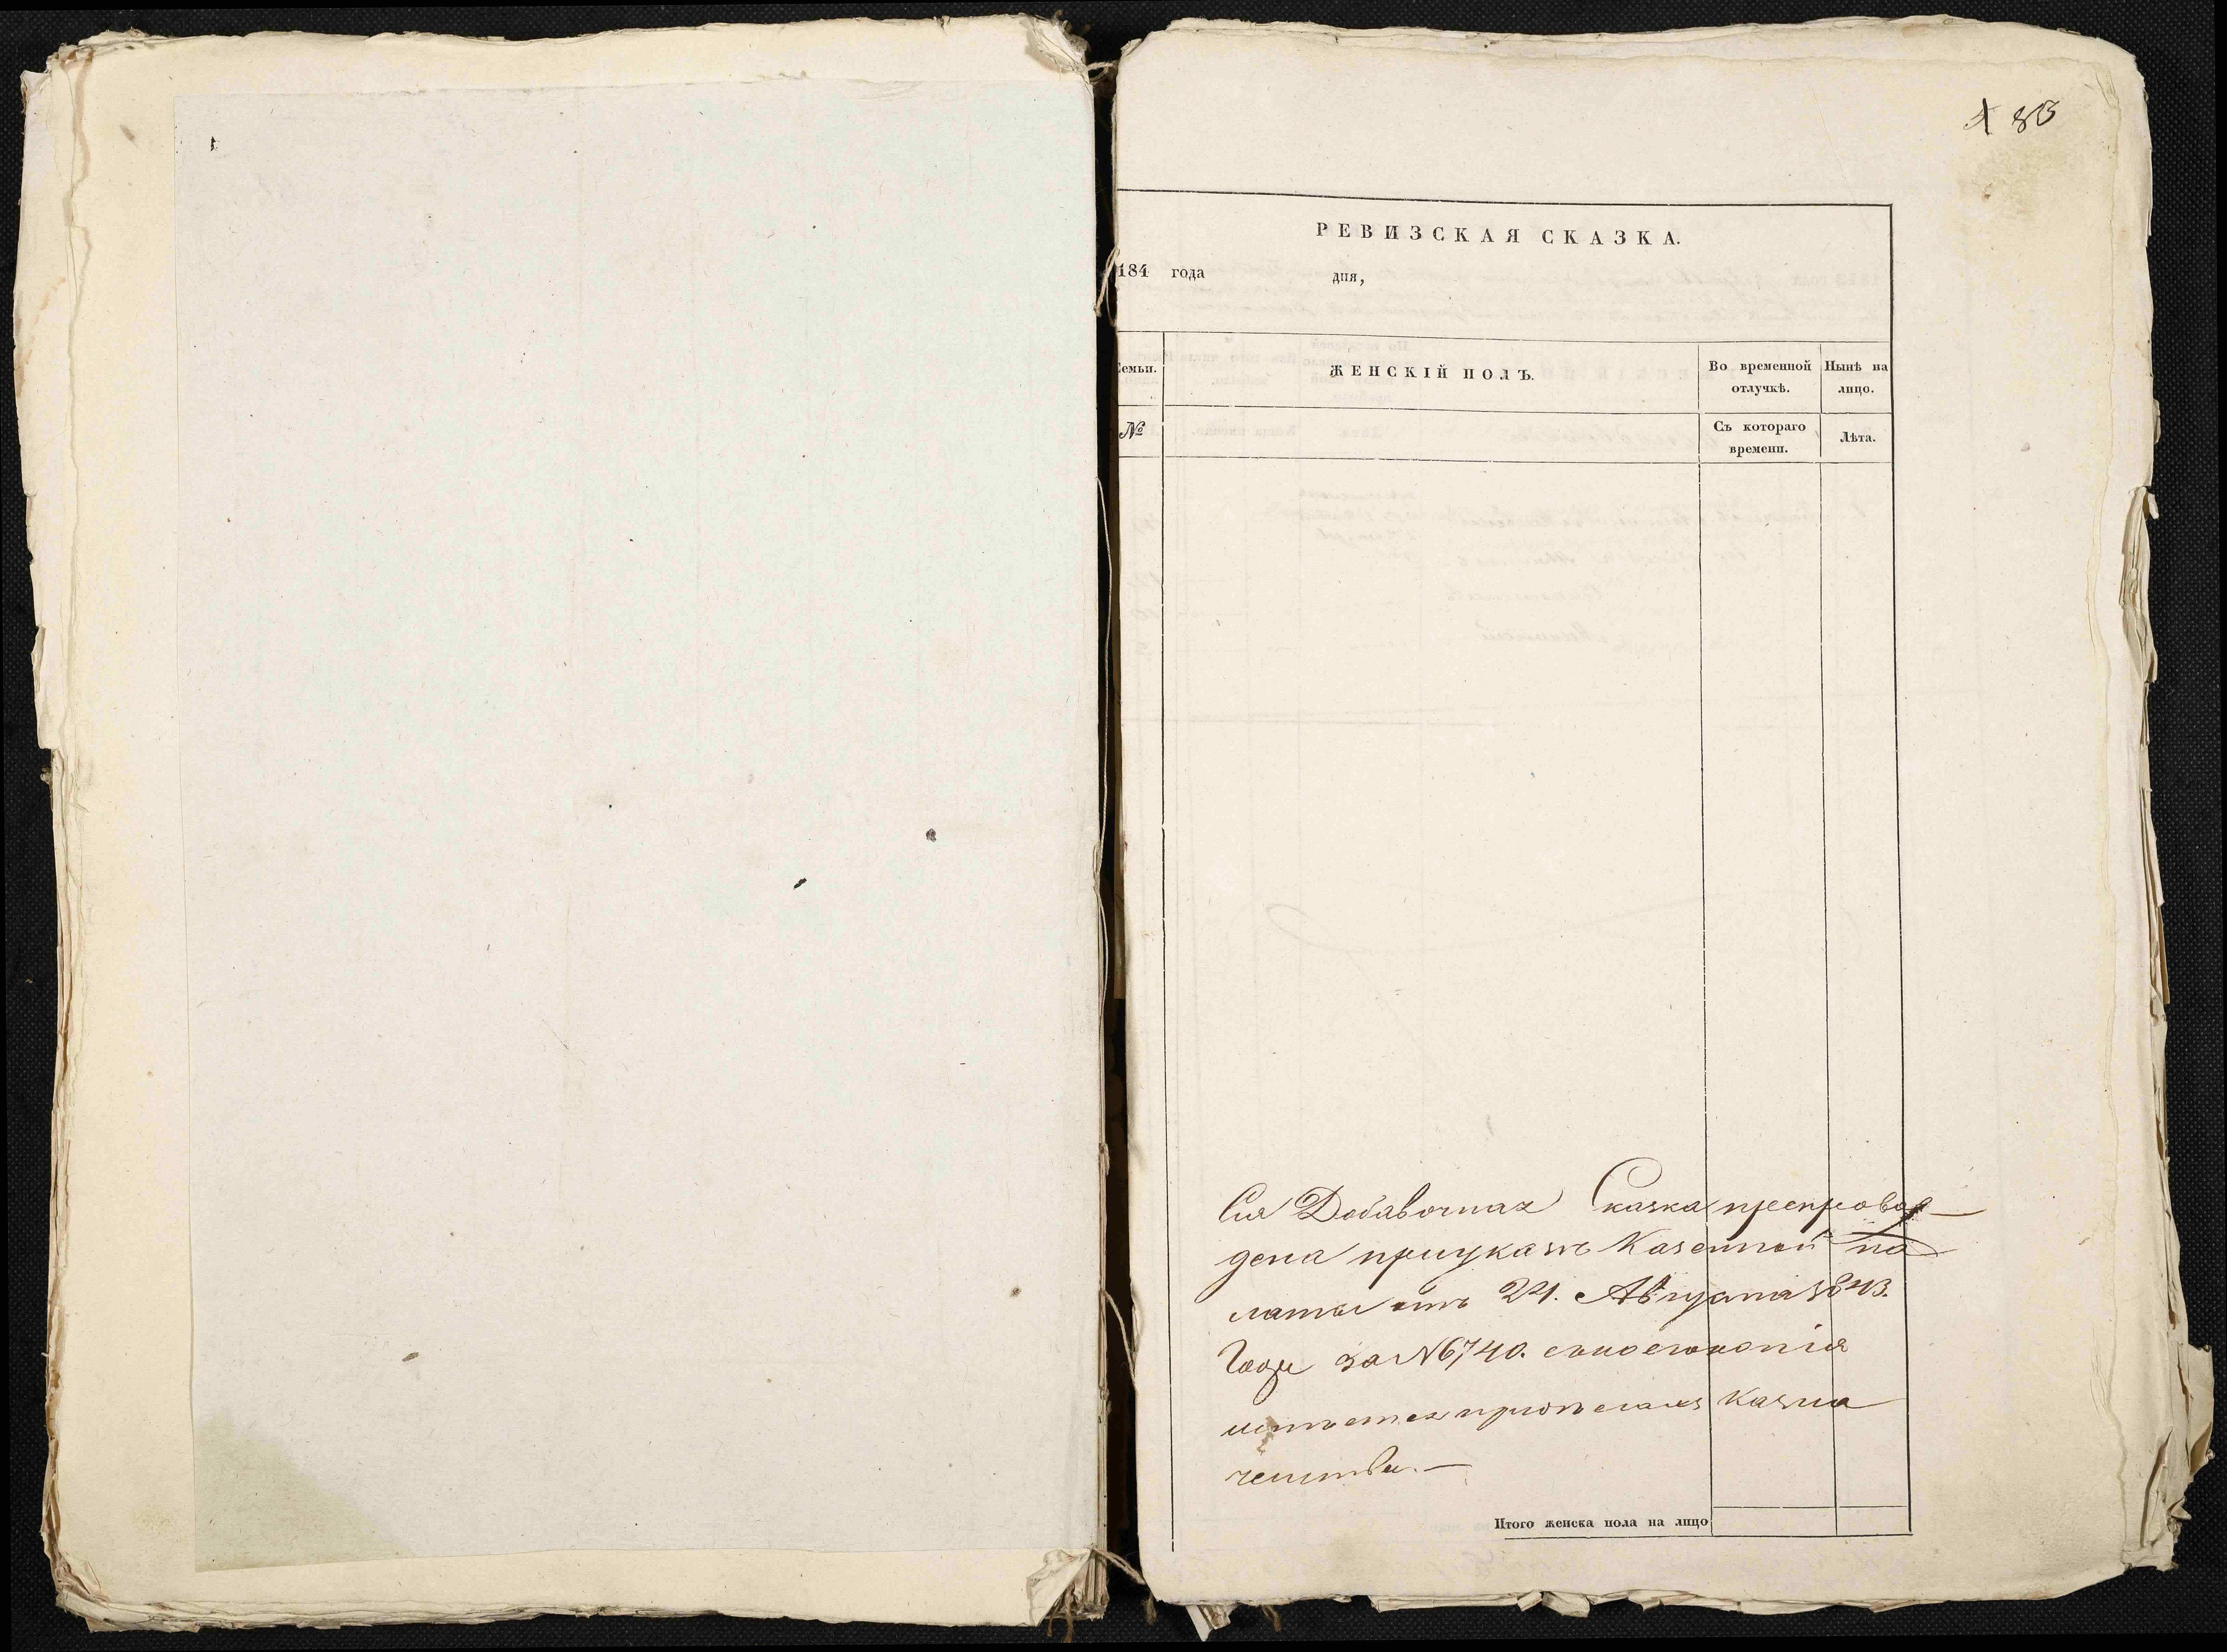 83
РЕВИЗСКАЯ СКАЗКА.
184 года дня,
Семьи. ЖЕНСКІЙ ПОЛЪ. Во временной отлучкѣ. Нынѣ на лицо.
№ Съ котораго времени. Лѣта.
Сія Добавочная Сказка препровож
дена приуказѣ Казенной па
латы отъ 24. Августа 1843.
Года за №6740. скоего копія
имѣется Казна
чейства.—
Итого женска пола на лицо